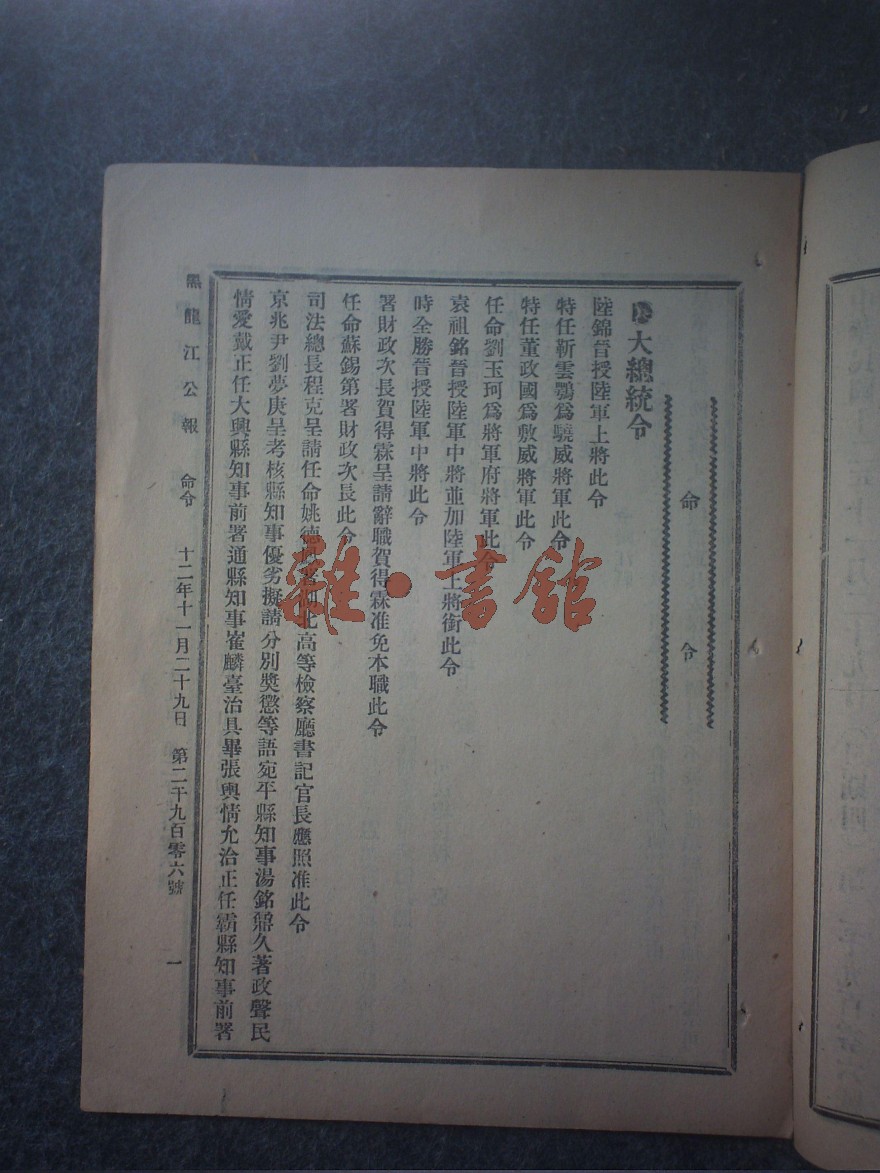 命令
大總統令
陸錦晉授陸軍上將此令
特任靳雲鶚爲驍威將軍此令
特任董政國爲敷威將軍此令
任命劉玉珂爲將軍府將軍此令
袁祖銘晉授陸軍中將並加陸軍上將銜此令
時全勝晉授陸軍中將此令
署財政次長賀得霖呈請辭職賀得霖准免本職此令
任命蘇錫第署財政次長此令
司法總長程克呈請任命姚德 北高等檢察廳書記官長應照准此令
京兆尹劉夢庚呈考核縣知事優劣擬請分別獎懲等語宛平縣知事湯銘鼎久著政聲民
情愛戴正任大興縣知事前署通縣知事崔麟臺治具畢張輿情允洽正任霸縣知事前署
黑龍江公報 命令 十二年十一月二十九日 第二千九百零六號 一
雜·書館